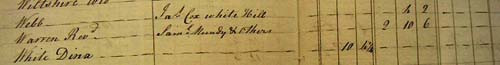 Wiltshire
Webb Jas. Cox white Hill 4 2
Warren Revd. Saml. Mundy & Others 2 10 6
White Dina 10